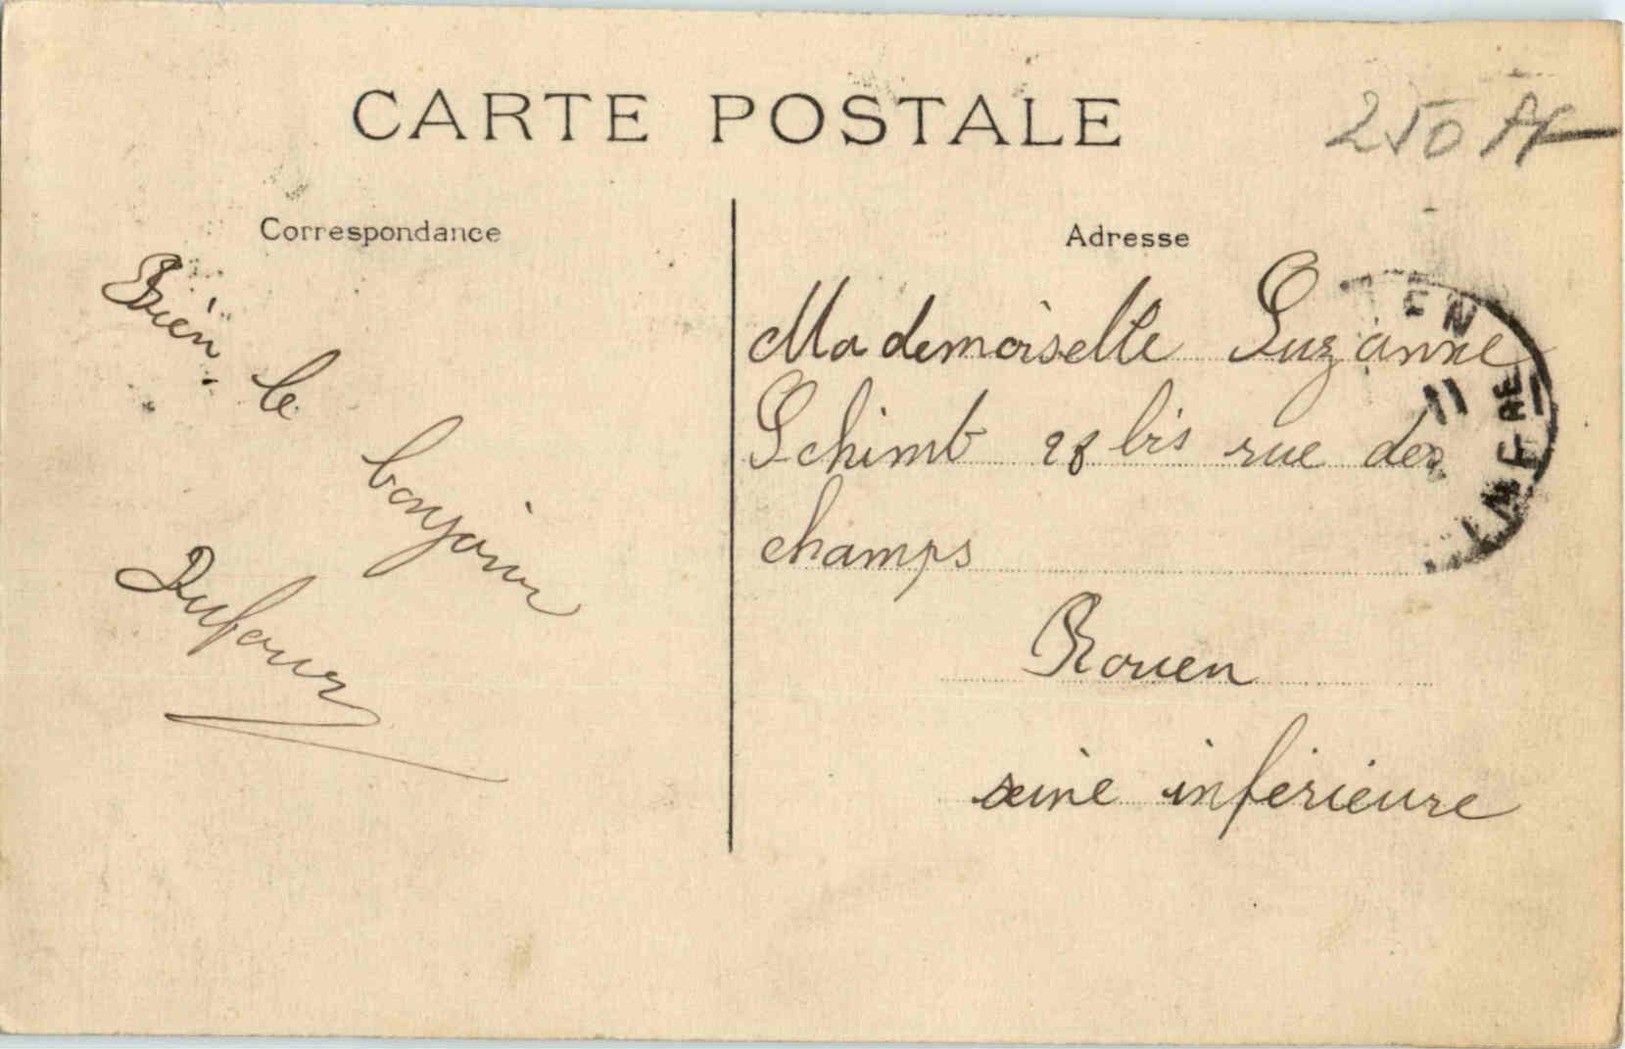 CARTE POSTALE
250
Correspondance
Adresse
Bien le bonjour
Dufour
Mademoiselle Suzanne
Schimb 28 bis rue des
champs
Rouen
seine inférieure
EN
11
INFRE